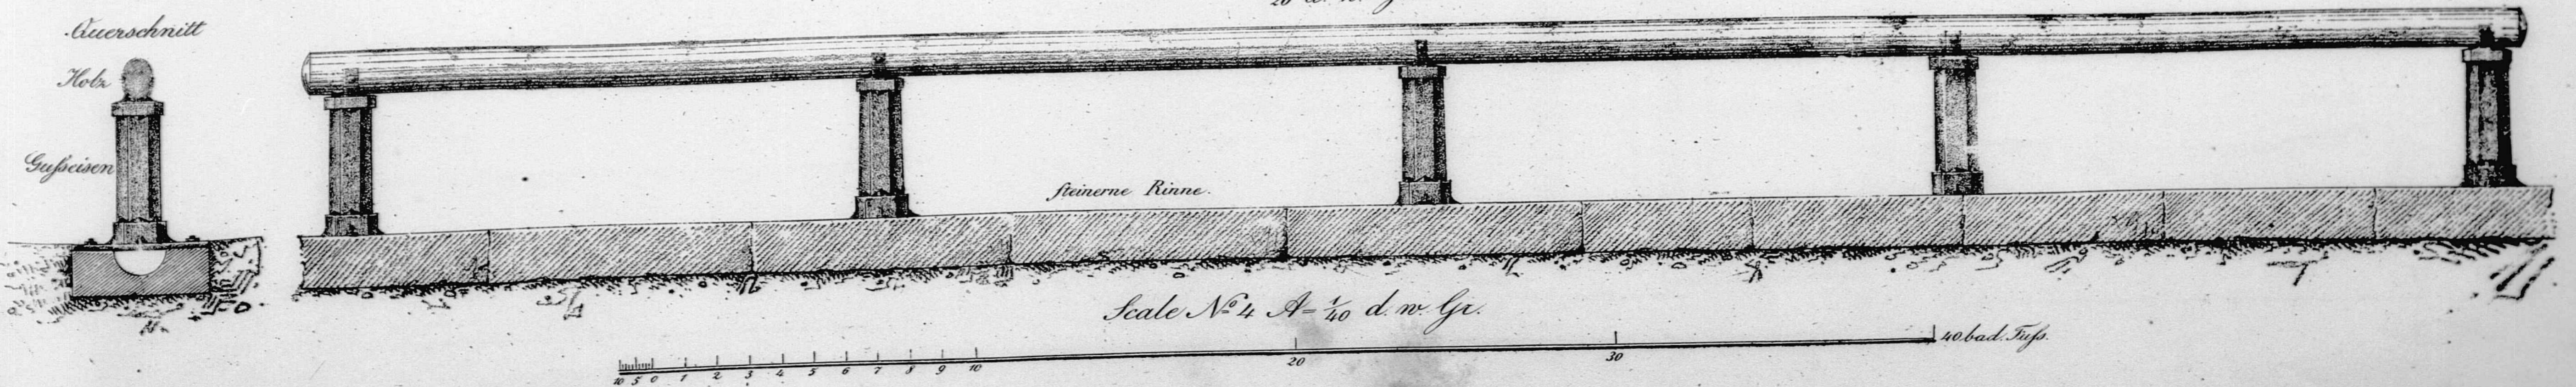 Querschnitt
Holz
Gußeisen
steinerne Rinne.
Scale No 4 A = 1/40 d. w. Gr.
10 5 0 1 2 3 4 5 6 7 8 9 10 20 30 40 bad. Fuss.